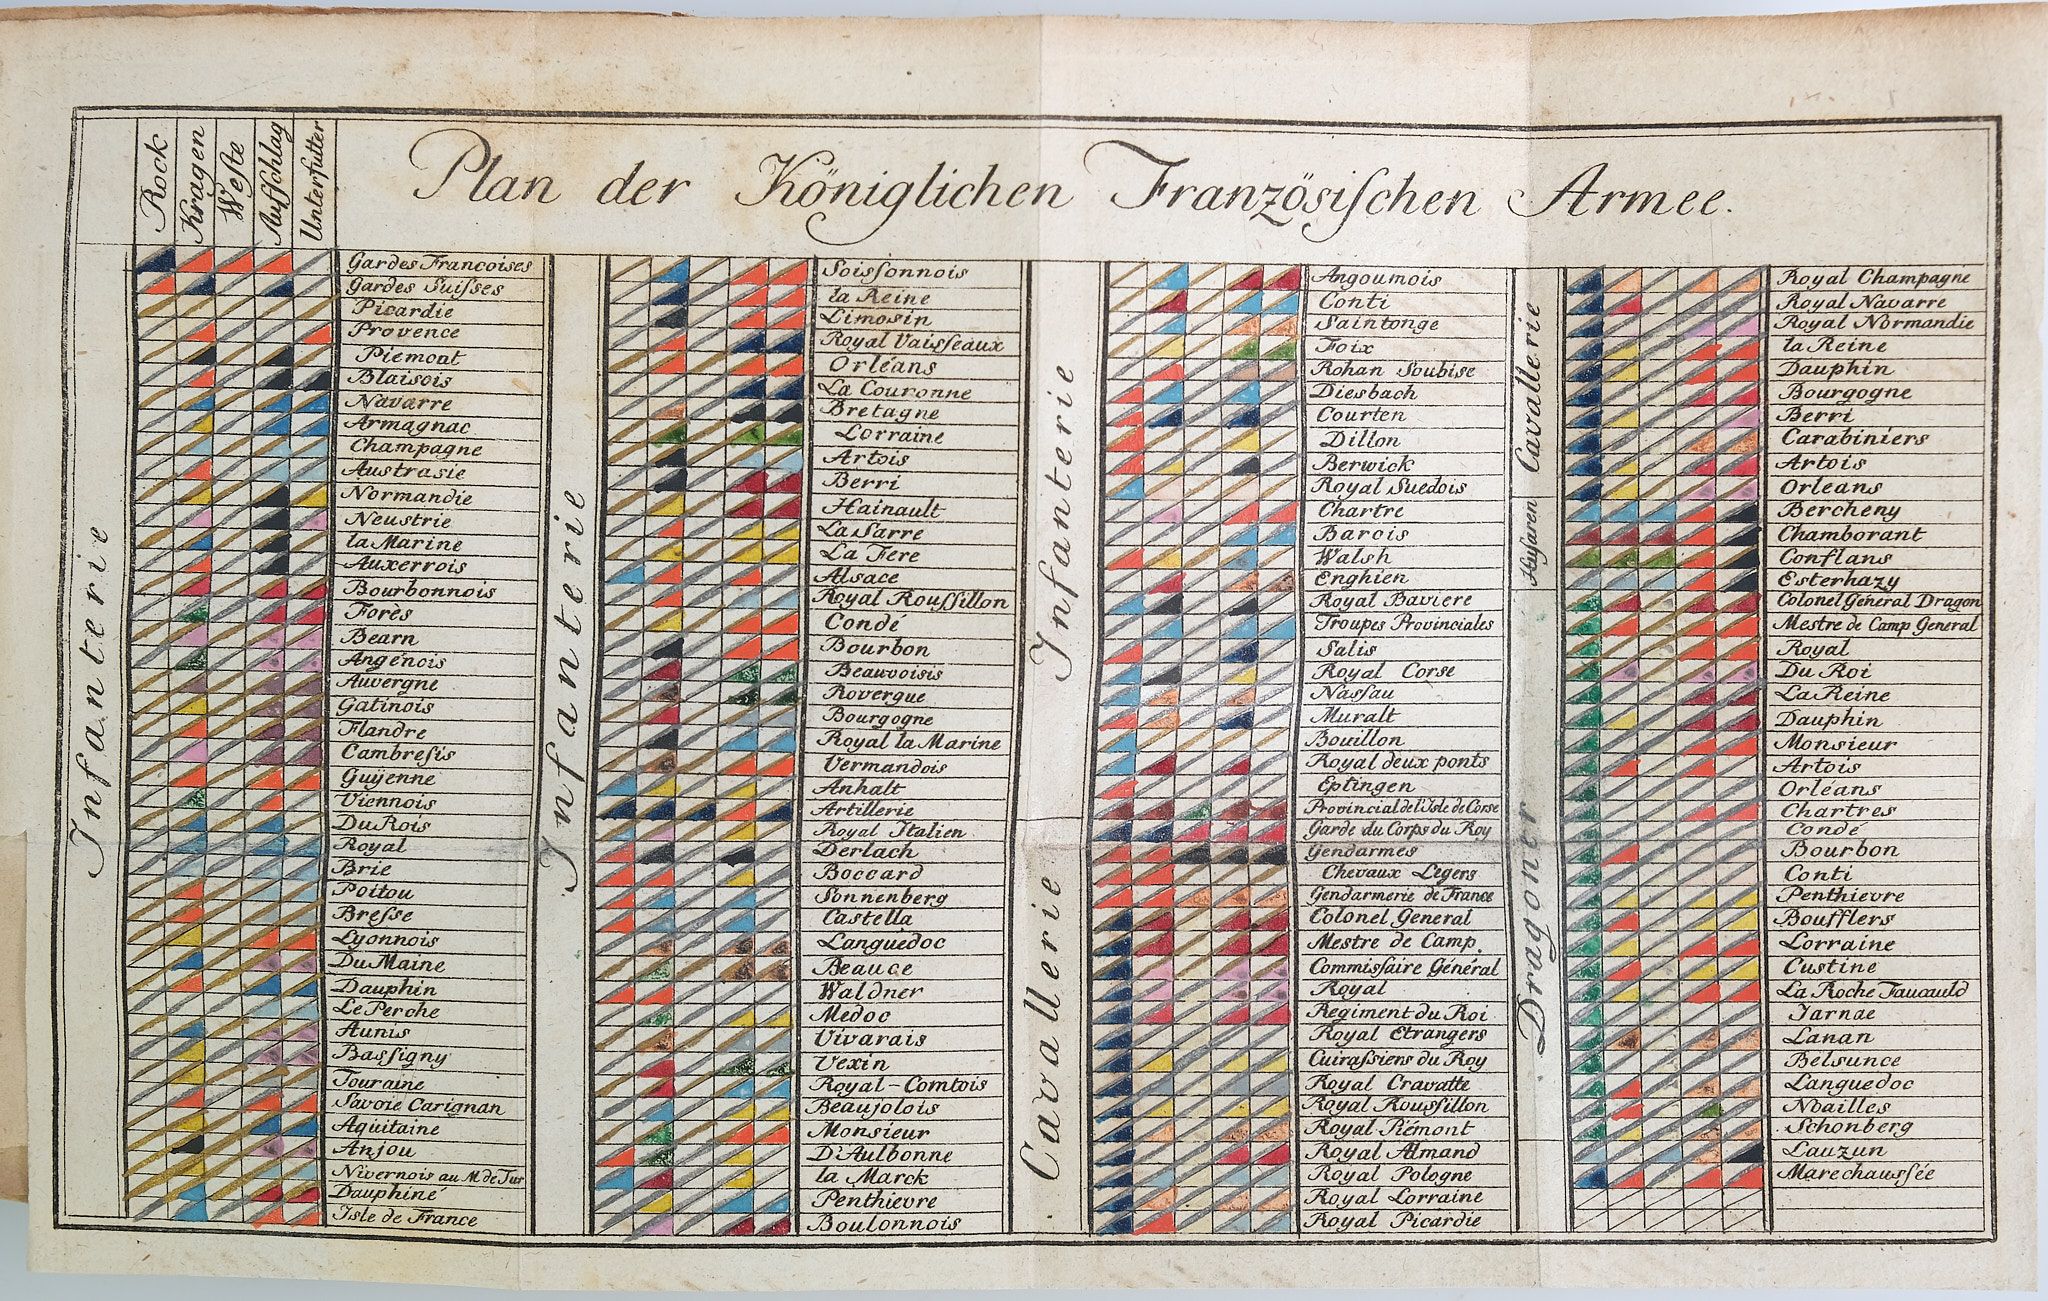 Plan der Königlichen Französischen Armee.
Rock
Kragen
Weste
Aufschlag
Unterfutter
Infanterie
Gardes Francoises
Gardes Suisses
Picardie
Provence
Piemont
Blaisois
Navarre
Armagnac
Champagne
Austrasie
Normandie
Neustrie
la Marine
Auxerrois
Bourbonnois
Forès
Bearn
Angénois
Auvergne
Gatinois
Flandre
Cambresis
Guyenne
Viennois
Du Rois
Royal
Brie
Poitou
Bresse
Lyonnois
Du Maine
Dauphin
Le Perche
Aunis
Bassigny
Touraine
Savoie Carignan
Aquitaine
Anjou
Nivernois au M de Tur
Dauphiné
Isle de France
Infanterie
Soissonnois
la Reine
Limosin
Royal Vaisseaux
Orléans
La Couronne
Bretagne
Lorraine
Artois
Berri
Hainault
La Sarre
La Fere
Alsace
Royal Roussillon
Condé
Bourbon
Beauvoisis
Rovergue
Bourgogne
Royal la Marine
Vermandois
Anhalt
Artillerie
Royal Italien
Derlach
Boccard
Sonnenberg
Castella
Languedoc
Beauce
Waldner
Medoc
Vivarais
Vexin
Royal-Comtois
Beaujolois
Monsieur
D'Aulbonne
la Marck
Penthievre
Boulonnois
Infanterie
Angoumois
Conti
Saintonge
Foix
Rohan Soubise
Diesbach
Courten
Dillon
Berwick
Royal Suedois
Chartre
Barois
Walsh
Enghien
Royal Baviere
Troupes Provinciales
Salis
Royal Corse
Nassau
Muralt
Bouillon
Royal deux ponts
Eptingen
Provincial de l'Isle de Corse
Cavallerie
Garde du Corps du Roy
Gendarmes
Chevaux Legers
Gendarmerie de France
Colonel General
Mestre de Camp
Commissaire Général
Royal
Regiment du Roi
Royal Etrangers
Cuirassiens du Roy
Royal Cravatte
Royal Roussillon
Royal Piémont
Royal Almand
Royal Pologne
Royal Lorraine
Royal Picardie
Cavallerie
Royal Champagne
Royal Navarre
Royal Normandie
la Reine
Dauphin
Bourgogne
Berri
Carabiniers
Artois
Orleans
Husaren
Bercheny
Chamborant
Conflans
Esterhazy
Dragoner
Colonel General Dragon
Mestre de Camp General
Royal
Du Roi
La Reine
Dauphin
Monsieur
Artois
Orléans
Chartres
Condé
Bourbon
Conti
Penthievre
Boufflers
Lorraine
Custine
La Roche Faucauld
Jarnae
Lanan
Belsunce
Languedoc
Noailles
Schonberg
Lauzun
Marechaussée